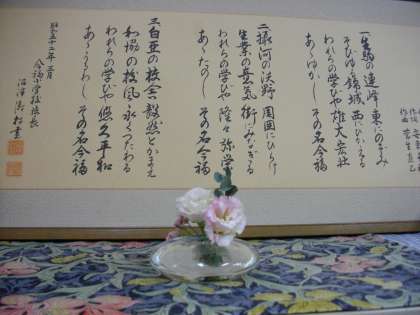 一 生駒の連峰 東にのぞみ
そびゆる錦城 西にひかえる
われらの学びや 雄大 宏壮
あゝゆかし その名今福
二 摂河の沃野 周囲にひらけ
生業の意気 街にみなぎる
われらの学びや 隆々 弥栄
あゝたのし その名今福
三 白亜の校舎 毅然とかまえ
和協の校風 永くつたわる
われらの学びや 悠久 平和
あゝうるわし その名今福
年 三月
今福小学校校長
書